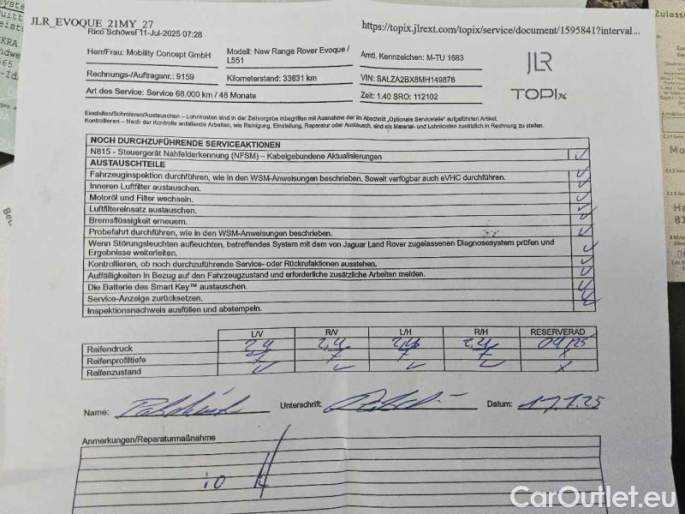 JLR_EVOQUE_21MY_27
https://topix.jlrext.com/topix/service/document/1595841?interval...
Rico Schöwel 11-Jul-2025 07:28
Herr/Frau: Mobility Concept GmbH
Modell: New Range Rover Evoque / L551
Amtl. Kennzeichen: M-TU 1683
JLR
Rechnungs-/Auftragsnr.: 9159
Kilometerstand: 33631 km
VIN: SALZA2BX8MH149878
Art des Service: Service 68.000 km / 48 Monate
Zeit: 1.40 SRO: 112102
TOPIx
Einstellen/Schmieren/Austauschen – Lohnkosten sind in der Zeitvorgabe inbegriffen mit Ausnahme der im Abschnitt „Optionale Serviceteile" aufgeführten Artikel.
Kontrollieren – Nach der Kontrolle anfallende Arbeiten, wie Reinigung, Einstellung, Reparatur oder Austausch, sind als Material- und Lohnkosten zusätzlich in Rechnung zu stellen.
NOCH DURCHZUFÜHRENDE SERVICEAKTIONEN
N815 - Steuergerät Nahfelderkennung (NFSM) – Kabelgebundene Aktualisierungen
AUSTAUSCHTEILE
Fahrzeuginspektion durchführen, wie in den WSM-Anweisungen beschrieben. Soweit verfügbar auch eVHC durchführen.
Inneren Luftfilter austauschen.
Motoröl und Filter wechseln.
Luftfiltereinsatz austauschen.
Bremsflüssigkeit erneuern.
Probefahrt durchführen, wie in den WSM-Anweisungen beschrieben.
Wenn Störungsleuchten aufleuchten, betreffendes System mit dem von Jaguar Land Rover zugelassenen Diagnosesystem prüfen und
Ergebnisse weiterleiten.
Kontrollieren, ob noch durchzuführende Service- oder Rückrufaktionen ausstehen.
Auffälligkeiten in Bezug auf den Fahrzeugzustand und erforderliche zusätzliche Arbeiten melden.
Die Batterie des Smart Key™ austauschen.
Service-Anzeige zurücksetzen.
Inspektionsnachweis ausfüllen und abstempeln.
L/V R/V L/H R/H RESERVERAD
Reifendruck 2,4 2,4 2,4 2,4
Reifenprofiltiefe 7 7 7 7 x
Reifenzustand x
Name:
Unterschrift:
Datum: 17.7.25
Anmerkungen/Reparaturmaßnahme
io
CarOutlet.eu